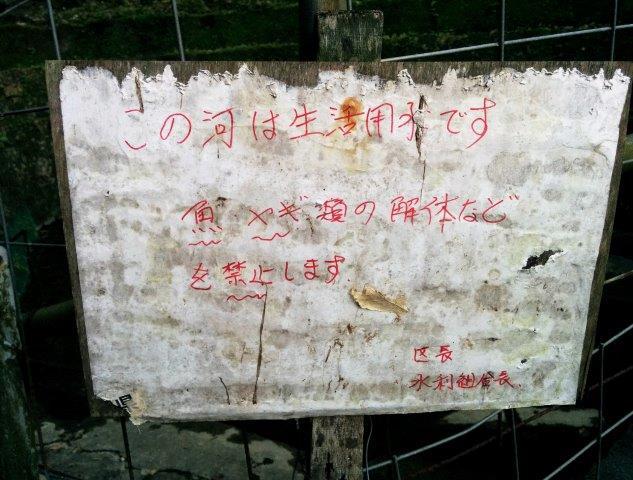 この河は生活用水です
魚 ヤギ類の解体など
を禁止します
区長
水利組合長